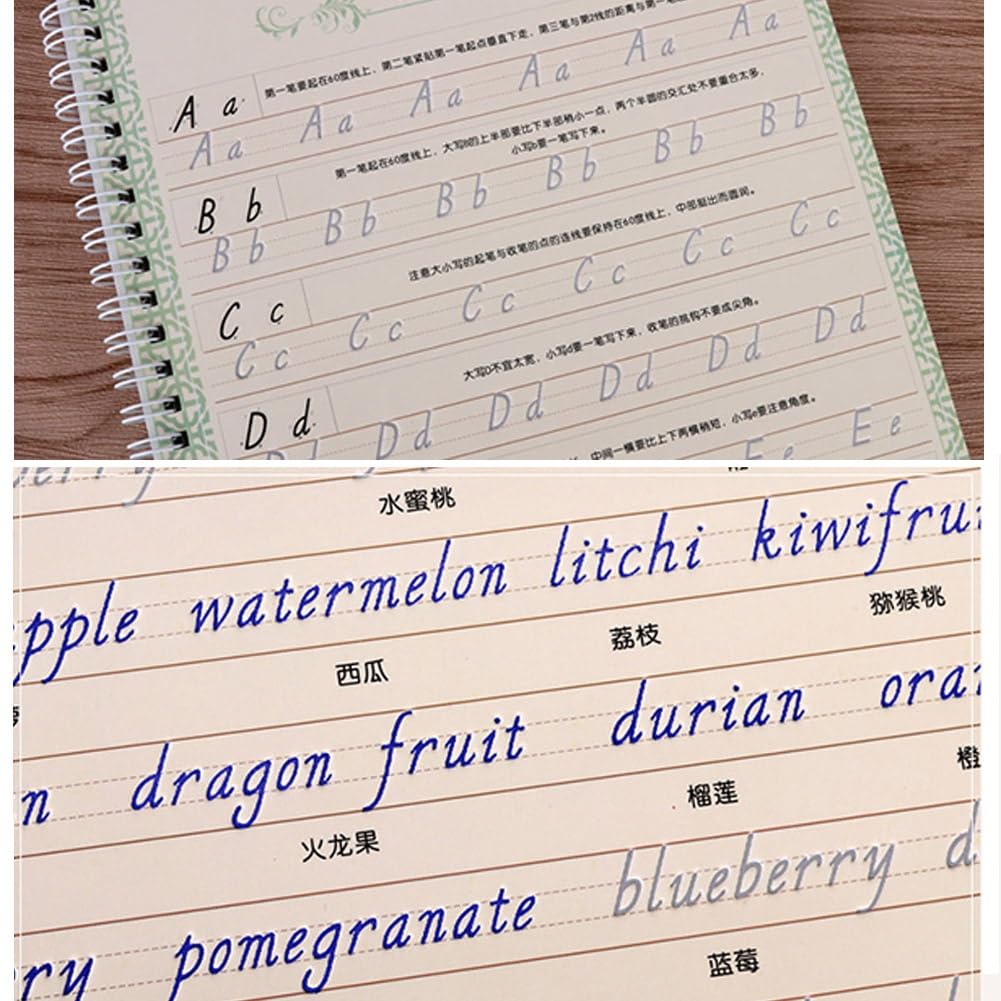 第一笔要起在60度线上，第二笔紧贴第一笔起点垂直下走，第三笔与第2线的距离与第一笔
A a
A a A a A a A a A a A a
第一笔起在60度线上，大写B的上半部要比下半部稍小一点，两个半圆的交汇处不要重合太多，
小写b要一笔写下来。
B b
B b B b B b B b B b B b
注意大小写的起笔与收笔的点的连线要保持在60度线上，中部挺出而圆润。
C c
C c C c C c C c C c C c
大写D不宜太宽，小写d要一笔写下来，收笔的挑钩不要成尖角。
D d
D d D d D d D d D d
中间一横要比上下两横稍短，小写e要注意角度。
E e E e
erry
水蜜桃
pple watermelon litchi kiwifru
西瓜 荔枝 猕猴桃
n dragon fruit durian ora
火龙果 榴莲 橙
ry pomegranate blueberry d
蓝莓